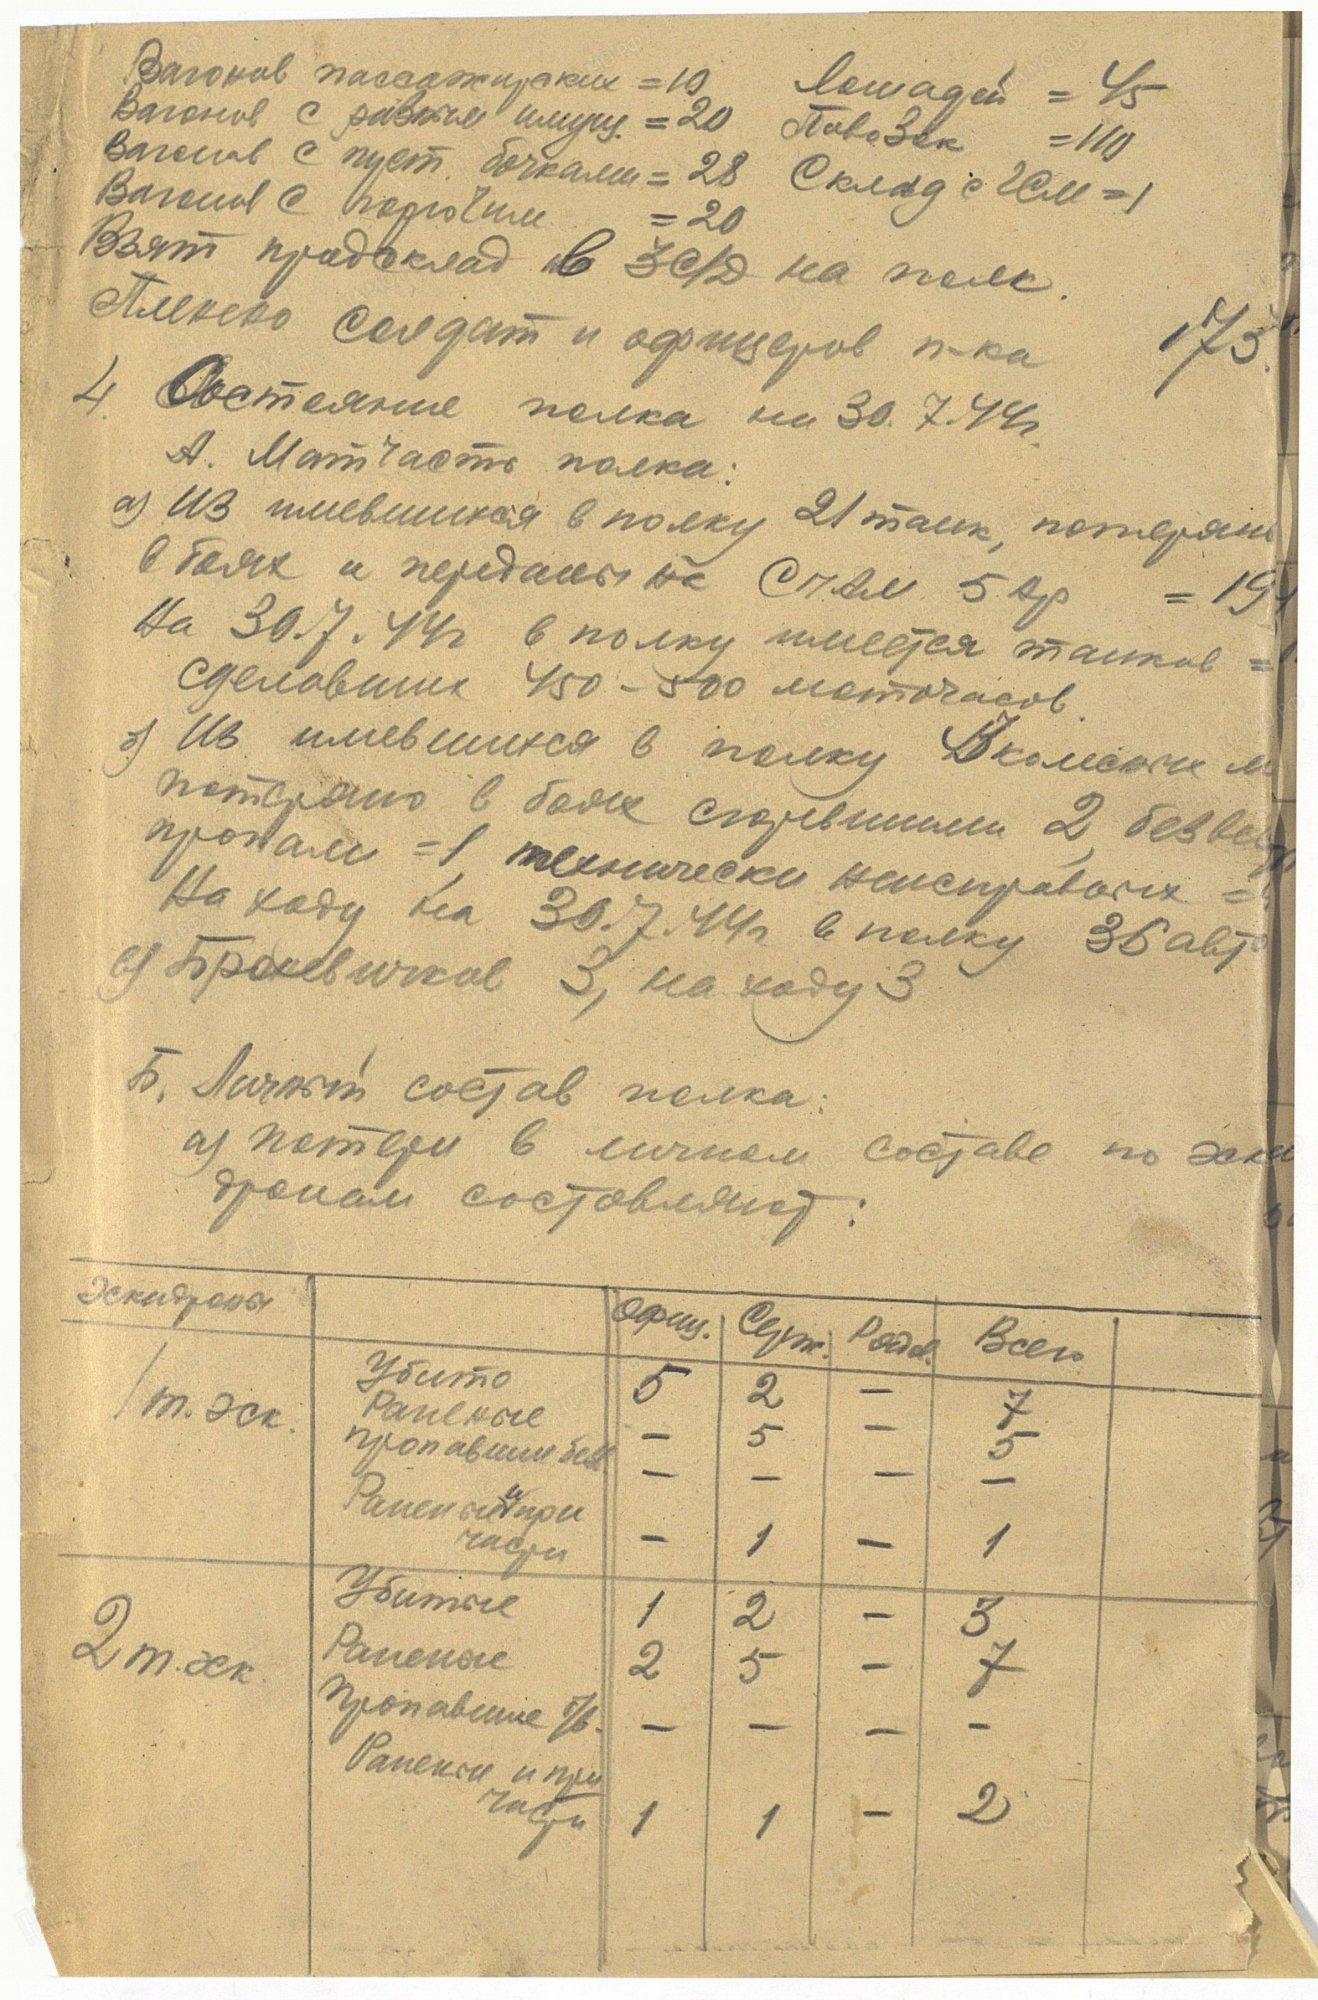 Вагонов пассажирских = 10 Лошадей = 45
Вагонов с разным имущ. = 20 Повозок = 110
Вагонов с пуст. бочками = 28 Склад с ГСМ = 1
Вагонов с горючим = 20
Взят продсклад в ЗС/Д на полк.
Пленено солдат и офицеров п-ка 173.
4. Состояние полка на 30.7.44г.
А. Матчасть полка:
а) Из имевшихся в полку 21 танк, потеряно
в боях и переданы на СПАМ 5 = 19
На 30.7.44г в полку имеется танков =
сделавших 450-500 моточасов.
б) Из имевшихся в полку колесных м
потеряно в боях сгоревшими 2, без вести
пропали = 1, технически неисправных =
На ходу на 30.7.44г в полку 36 авто
в) Броневичков 3, на ходу 3
Б. Личный состав полка:
а) потери в личном составе по эска
дронам составляют:
Эскадроны Офиц. Серж. Рядов. Всего
1 т. эск. Убито 5 2 – 7
Раненые – 5 – 5
пропавшии без – – – –
Раненый и при
части – 1 – 1
2 т. эск. Убитые 1 2 – 3
Раненые 2 5 – 7
Пропавшие б/в. – – – –
Ранены и при
части 1 1 – 2